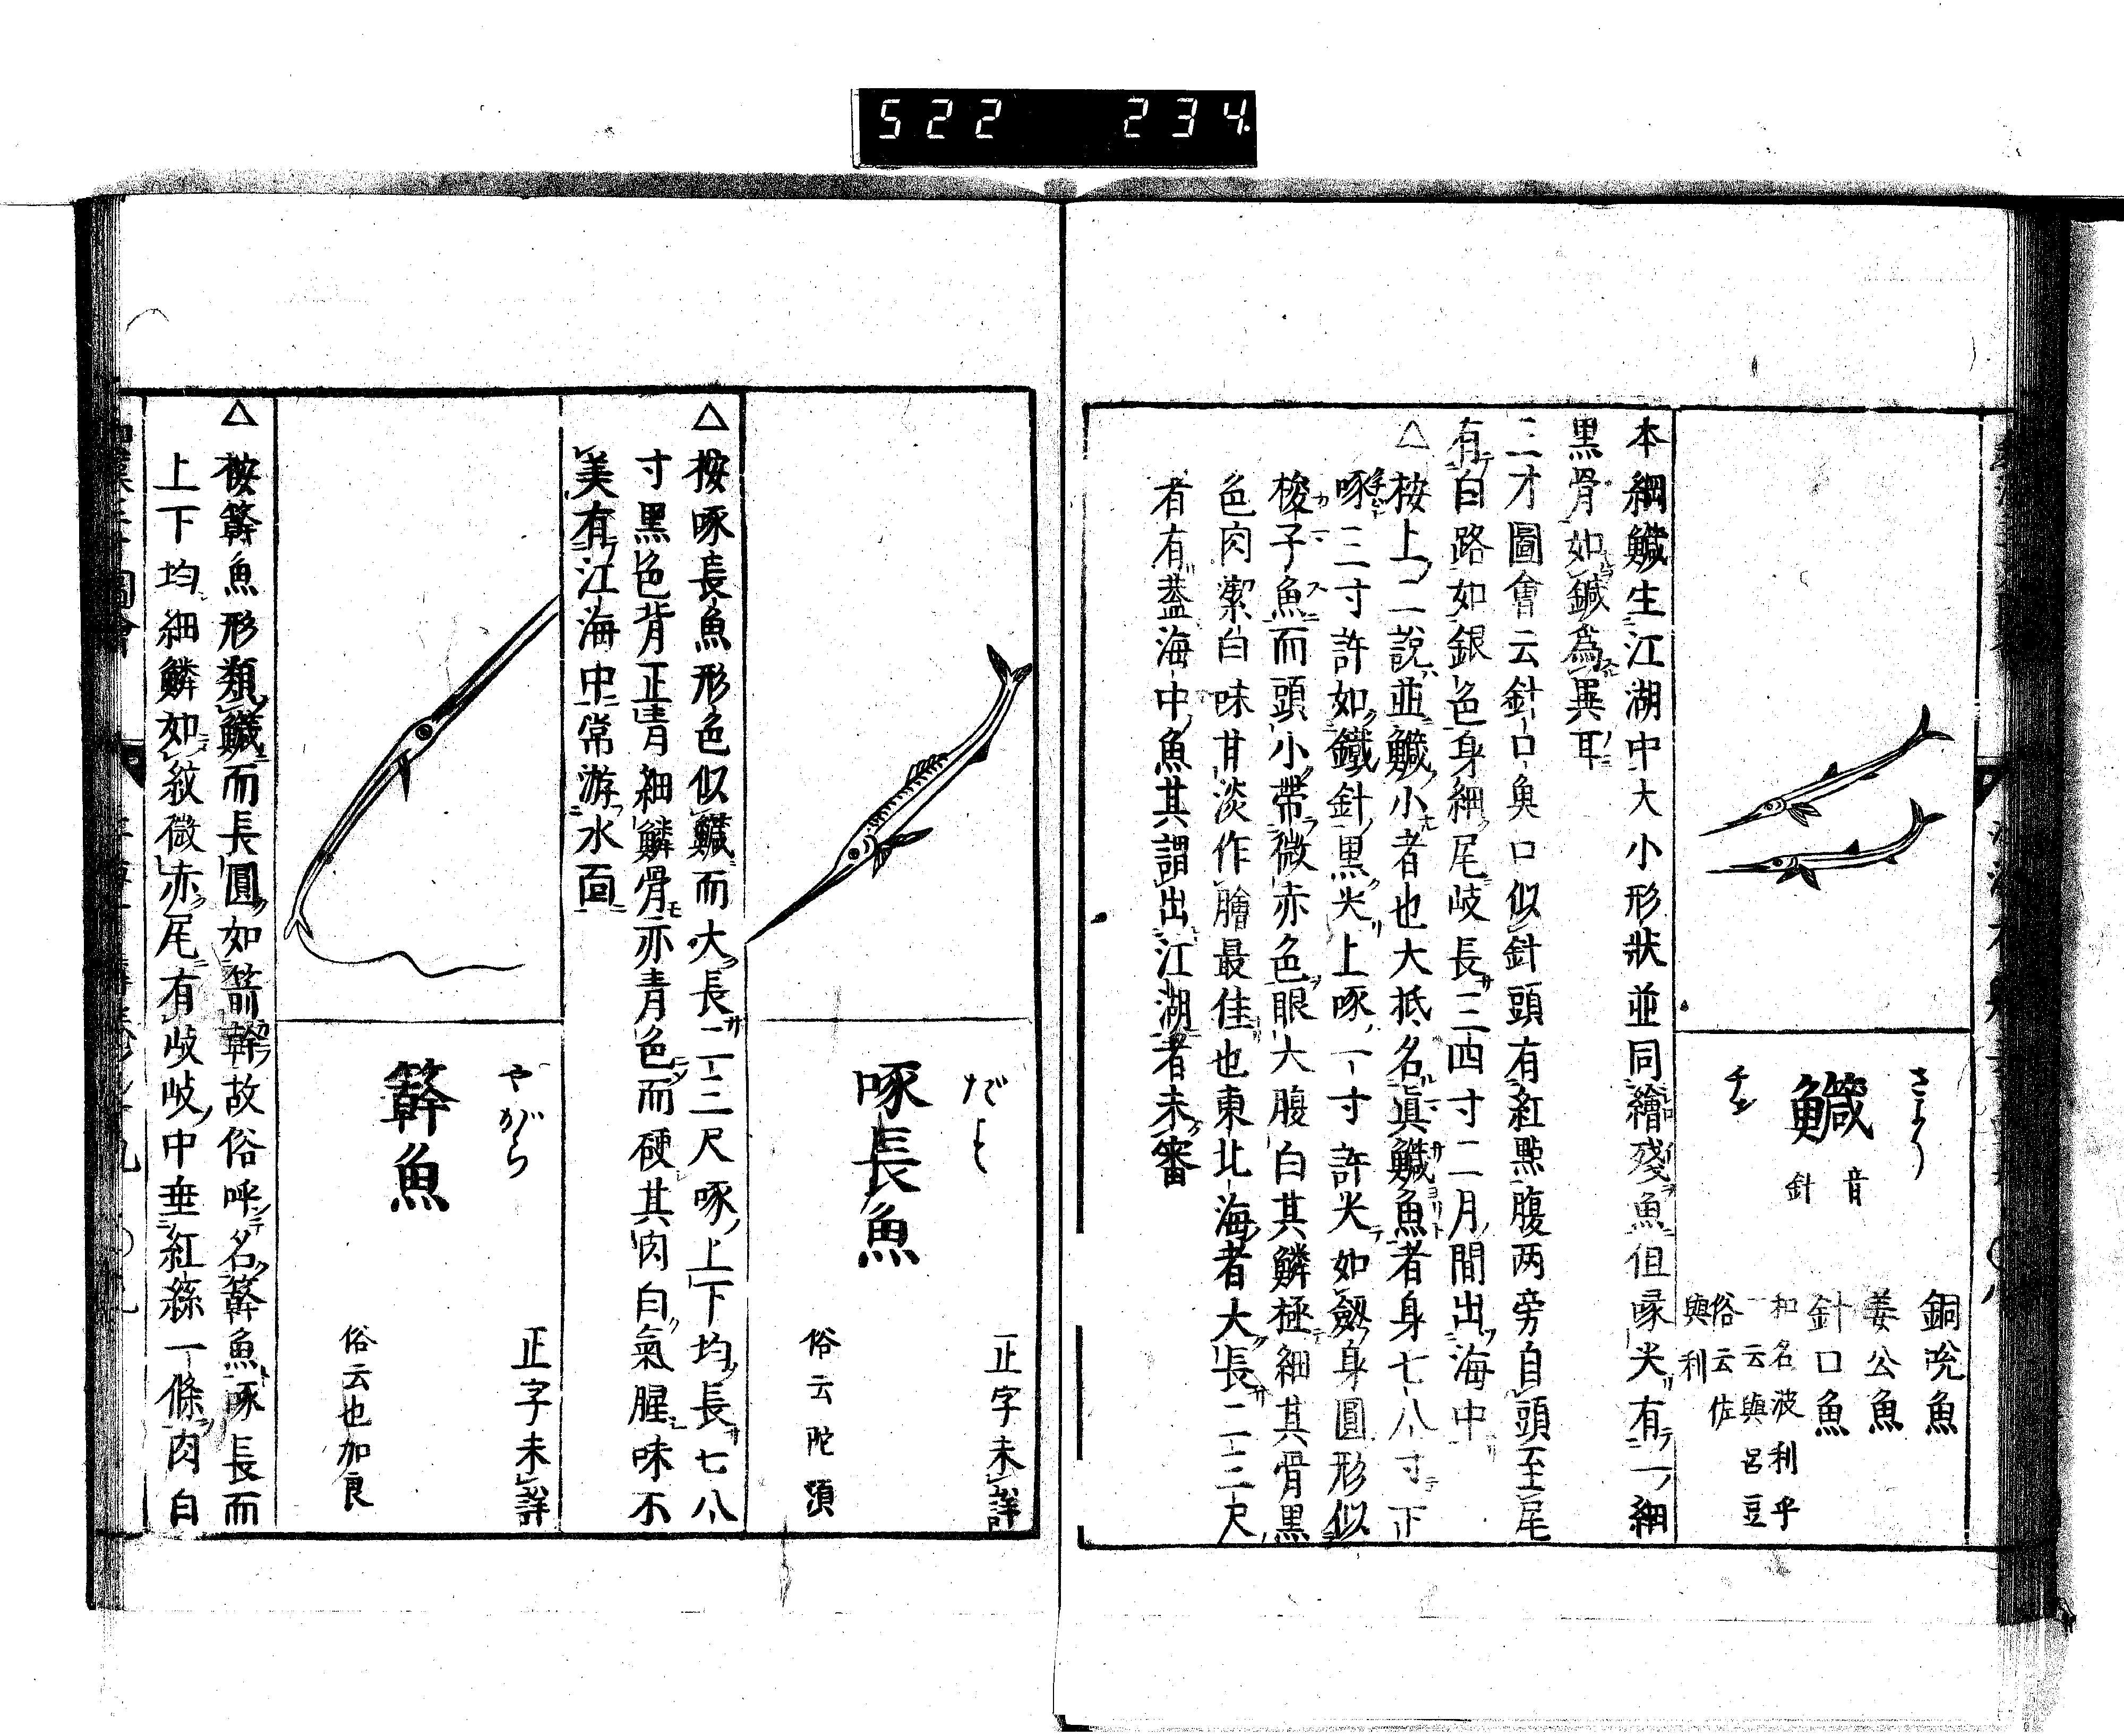 522 234
鱵
音
針
さより
銅哾魚
姜公魚
針口魚
和名波利乎
一云與呂豆
俗云佐
與利
本綱鱵生江湖中大小形狀並同繪殘魚但喙尖有一細
黒骨如鍼爲異耳
三才圖會云針口魚口似針頭有紅㸃腹两旁自頭至尾
有白路如銀色身細尾岐長三四寸二月間出海中
△按上二說並鱵小者也大抵名眞鱵魚者身七八寸下
啄三寸許如鐵針黒尖上啄一寸許尖如劔身圓形似
梭子魚而頭小帶微赤色眼大腹白其鱗極細其骨黒
色肉潔白味甘淡作膾最佳也東北海者大長二三尺
者有蓋海中魚其謂出江湖者未審
だす
啄長魚
正字未詳
俗云陀須
△按啄長魚形色似鱵而大長二三尺啄上下均長七八
寸黒色背正青細鱗骨亦青色而硬其肉白氣腥味不
美有江海中常游水面
やがら
簳魚
正字未詳
俗云也加良
△按簳魚形類鱵而長圓如箭簳故俗呼名簳魚啄長而
上下均細鱗如紋微赤尾有岐岐中垂紅絲一條肉白